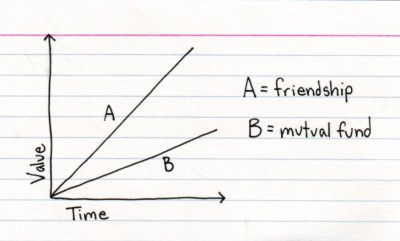 A
B
Value
Time
A = friendship
B = mutual fund